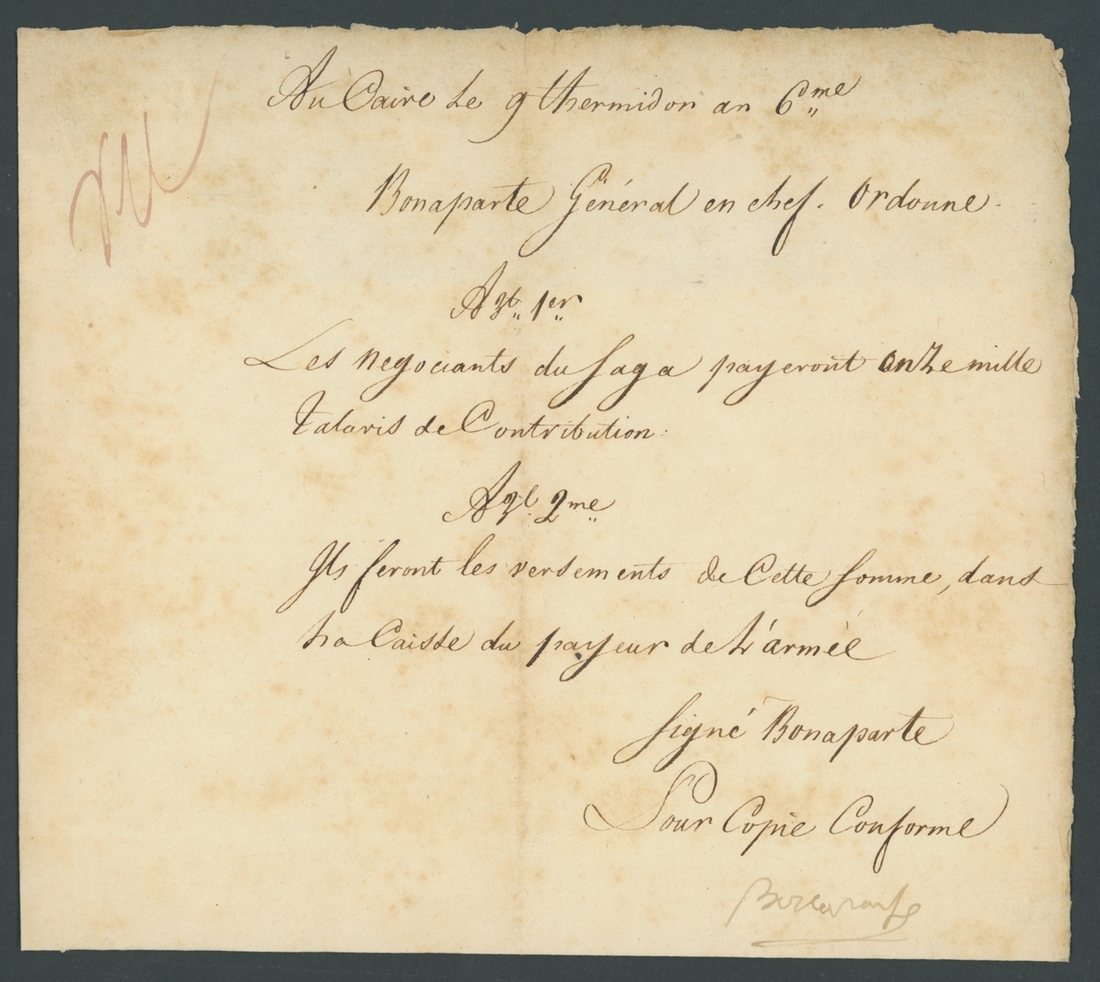 Au Caire Le 9 thermidor an 6me
Bonaparte Général en chef. Ordonne
Art. 1er
Les negociants du Saga payeront onze mille
talaris de Contribution.
Art. 2me
Ils feront les versements de Cette Somme, dans
La Caisse du payeur de L'armée
Signé Bonaparte
Pour Copie Conforme